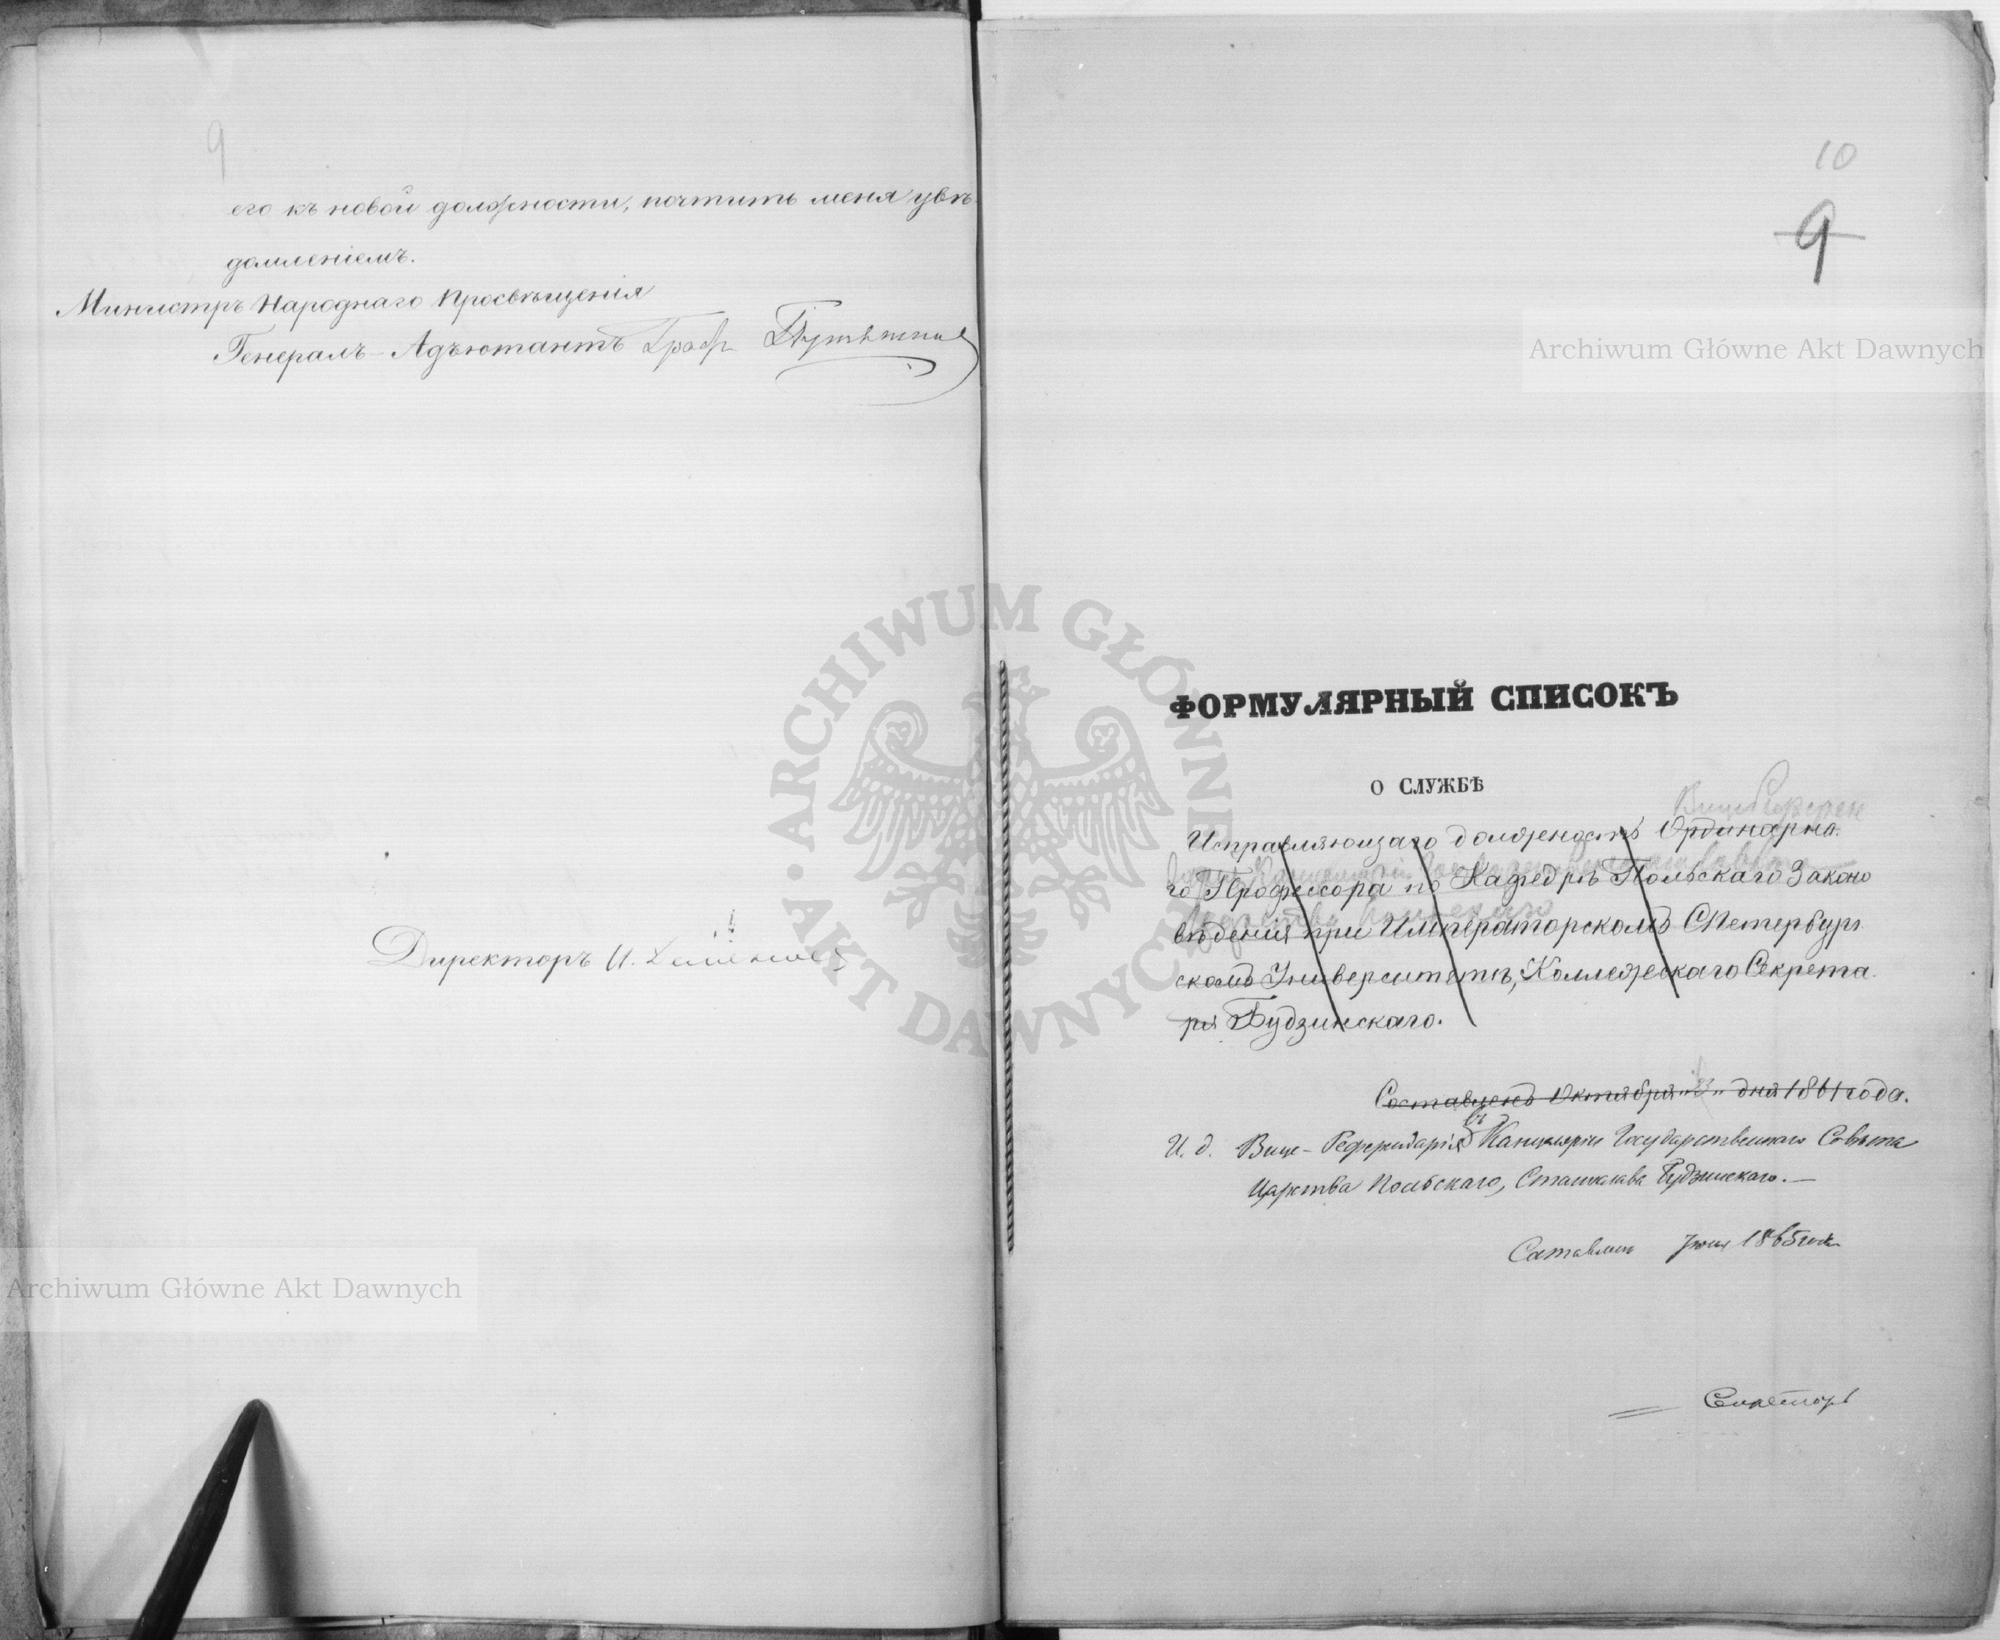 9
его къ новой должности, почтить меня увѣ-
домленіемъ.
Министръ Народнаго Просвѣщенія
Генералъ-Адъютантъ Графъ Путятинъ
Директоръ И.
10
9
Archiwum Główne Akt Dawnych
ARCHIWUM GŁÓWNE AKT DAWNYCH
ФОРМУЛЯРНЫЙ СПИСОКЪ
О СЛУЖБѢ
Исправляющаго должность Ординарна-
го Профессора по Кафедрѣ Польскаго Законо
вѣденія при Императорскомъ СПетербург-
скомъ Университетѣ, Коллежскаго Секрета-
ря Будзинскаго.
Составленъ Октября дня 1861 года.
И. д. Вице-Референдарія въ Канцеляріи Государственнаго Совѣта
Царства Польскаго, Станислава Будзинскаго.—
Составленъ 1865 года
Archiwum Główne Akt Dawnych